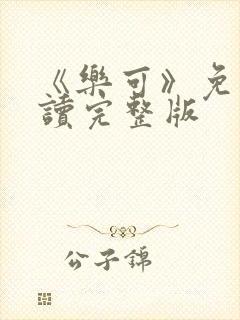 《樂可》免
讀完整版
公子錦